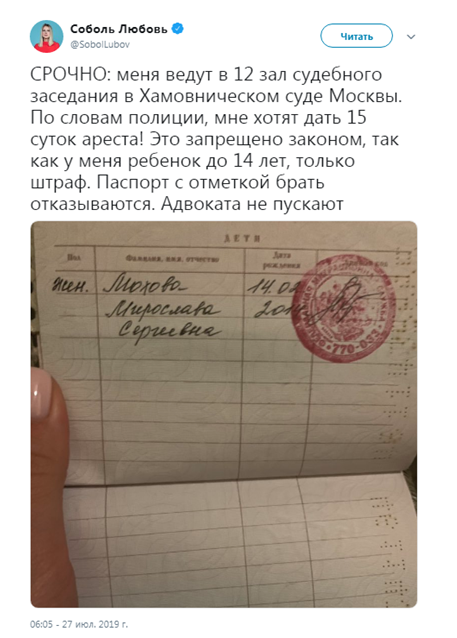 Соболь Любовь
@SobolLubov
Читать
СРОЧНО: меня ведут в 12 зал судебного
заседания в Хамовническом суде Москвы.
По словам полиции, мне хотят дать 15
суток ареста! Это запрещено законом, так
как у меня ребенок до 14 лет, только
штраф. Паспорт с отметкой брать
отказываются. Адвоката не пускают
ДЕТИ
Пол Фамилия, имя, отчество Дата
рождения
жен. Мохова 14.02
Мирослава
Сергеевна
770-033
06:05 - 27 июл. 2019 г.